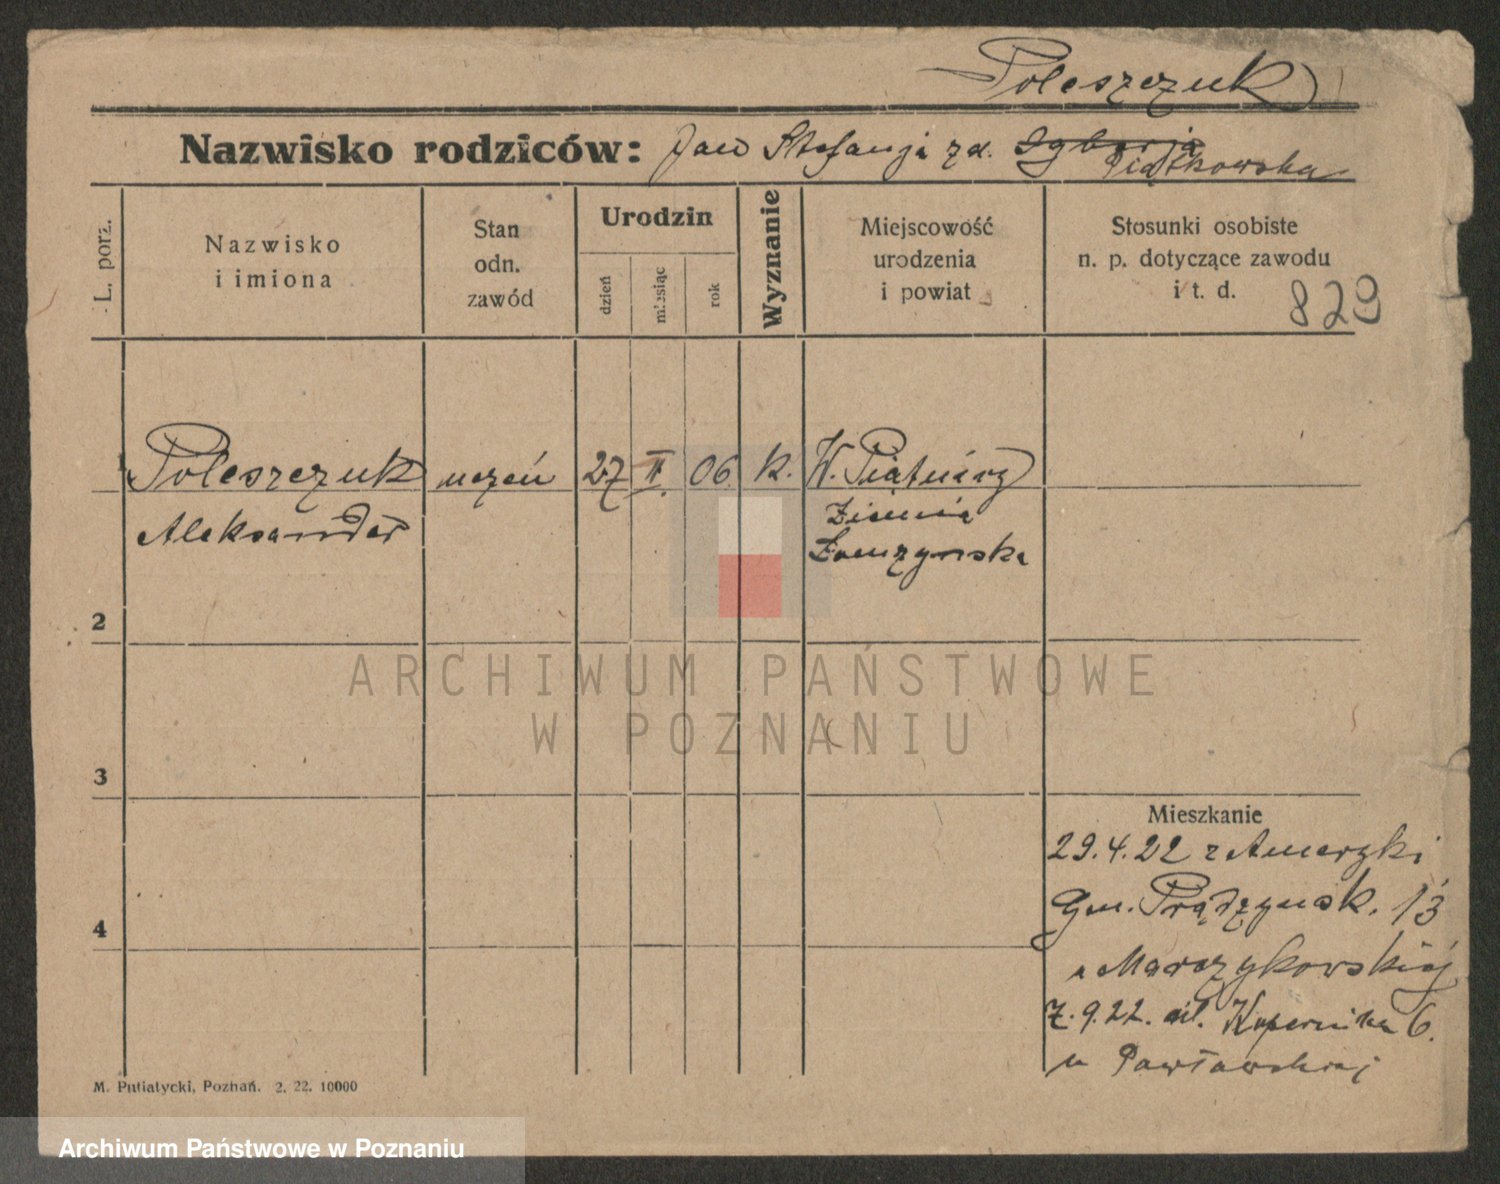 Poleszczuk
Nazwisko rodziców: Jan Stefanja zd. Piątkowska
L. porz.
Nazwisko
i imiona
Stan
odn.
zawód
Urodzin
dzień
miesiąc
rok
Wyznanie
Miejscowość
urodzenia
i powiat
Stosunki osobiste
n. p. dotyczące zawodu
i t. d.
829
1 Poleszczuk uczeń 27 II 06 k. W.
Aleksander Ziemia
Łomzynska
2
3
4
Mieszkanie
29.4.22 z Ameryki
Gen. Prądzynsk. 13
u Marczykowskiej
7.9.22. ul. Kopernika 6.
u Pawławskiej
M. Putiatycki, Poznań. 2. 22. 10000
ARCHIWUM PAŃSTWOWE
W POZNANIU
Archiwum Państwowe w Poznaniu